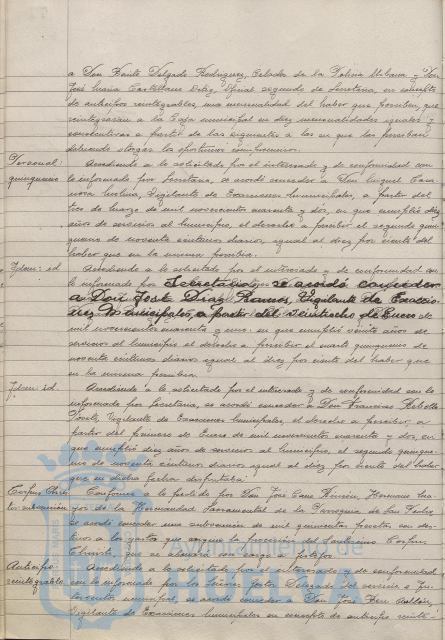 a Don Benito Delgado Rodriguez, Celador de la Policia Urbana y Don
José María Castellano Ortiz, Oficial segundo de Secretaria, en concepto
de anticipos reintegrables, una mensualidad del haber que perciben, que
reintegrarán a la Caja municipal en diez mensualidades iguales y
consecutivas a partir de las siguientes a las en que las perciban
debiendo otorgar los oportunos compromisos.
Personal: Accediendo a lo solicitado por el interesado y de conformidad con
quinquenios lo informado por Secretaria, se acordó conceder a Don Miguel
Molina, Vigilante de Exacciones Municipales, a partir del
tres de marzo de mil novecientos cuarenta y dos, en que cumplió diez
años de servicios al municipio, el derecho a percibir el segundo quin-
quenio de noventa céntimos diarios, igual al diez por ciento del
haber que en la misma percibia.
Idem: id. Accediendo a lo solicitado por el interesado y de conformidad con
lo informado por Secretaria, se acordó conceder
a Don José Diaz Ramos, Vigilante de Exaccio-
nes Municipales, a partir del veintiocho de Enero de
mil novecientos cuarenta y uno, en que cumplió veinte años de
servicios al municipio el derecho a percibir el cuarto quinquenio de
noventa céntimos diarios igual al diez por ciento del haber que
en la misma percibia.
Idem: id. Accediendo a lo solicitado por el interesado y de conformidad con lo
informado por Secretaria, se acordó conceder a Don Francisco
Vigilante de Exacciones Municipales, el derecho a percibir, a
partir del primero de Enero de mil novecientos cuarenta y dos, en
que cumplió diez años de servicios al municipio, el segundo quinque-
nio de noventa céntimos diarios igual al diez por ciento del haber
que en dicha fecha disfrutaba.
Corpus Christi Conforme a lo pedido por Don José Hermano ma-
subvención yor de la Hermandad Sacramental de la Parroquia de San Pedro,
se acordó conceder una subvención de mil quinientas pesetas con des-
tino a los gastos que origine la procesión del Santísimo Corpus
Christi, que se abonará con cargo a
Anticipo Accediendo a lo solicitado por el interesado y de conformidad
reintegrable con lo informado por los Señores Gestor Delegado del servicio e In-
terventor municipal, se acordó conceder a Don José
Vigilante de Exacciones Municipales en concepto de anticipo reinte-